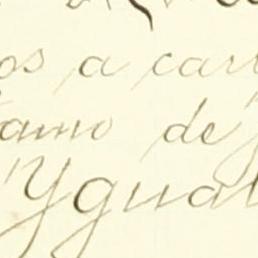 os a car
tamo de
Ygual